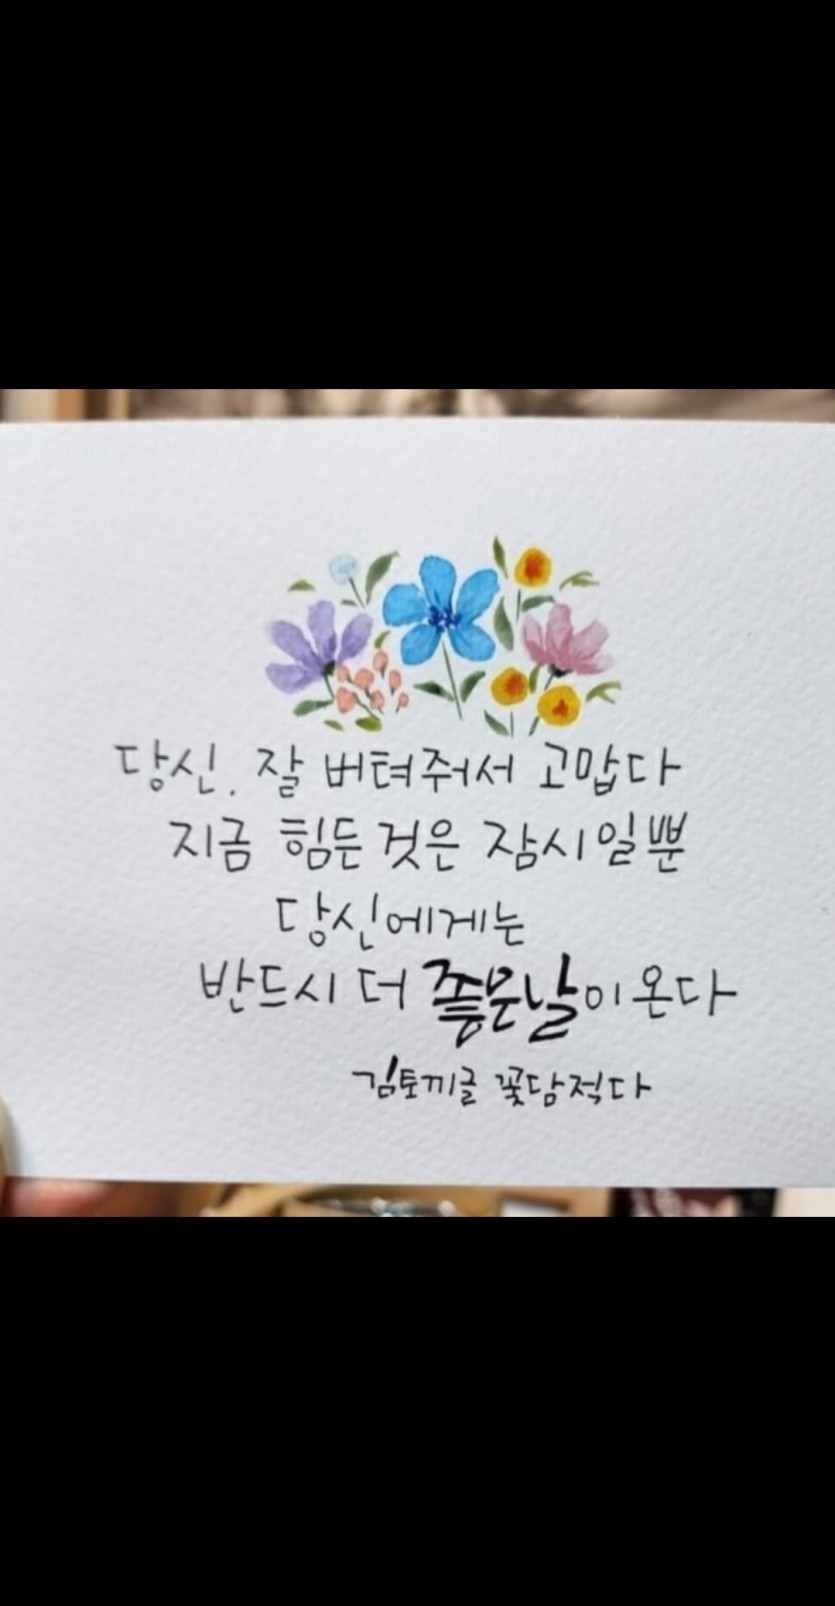 당신, 잘 버텨줘서 고맙다
지금 힘든 것은 잠시일뿐
당신에게는
반드시 더 좋은날이 온다
김토끼글 꽃담적다